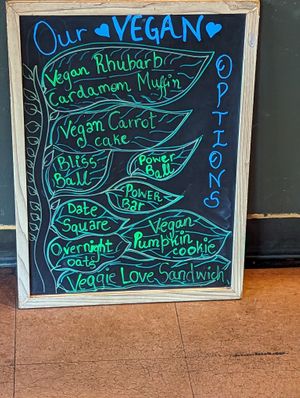 Our VEGAN
OPTIONS
Vegan Rhubarb
Cardamom Muffin
Vegan Carrot
cake
Bliss
Ball
Power
Ball
Power
Bar
Date
Square
Vegan
Pumpkin
cookie
Overnight
oats
Veggie Love Sandwich